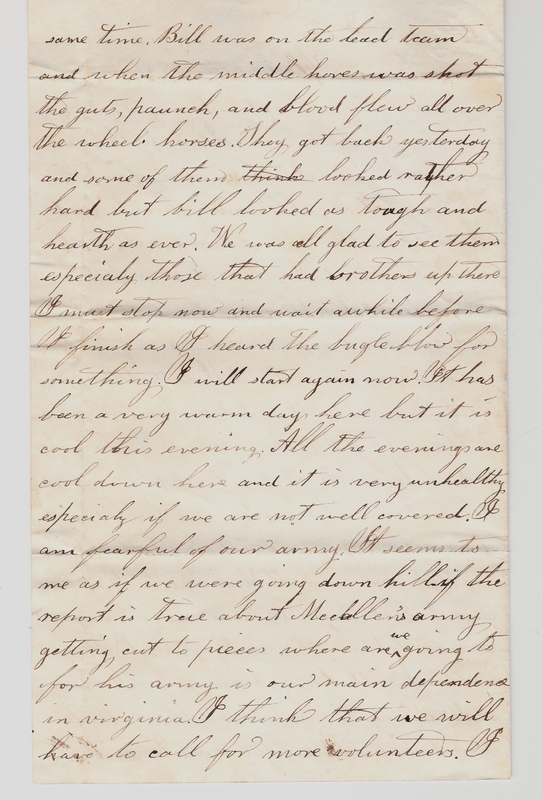 same time. Bill was on the lead team
and when the middle hores was shot
the guts, paunch, and blood flew all over
the wheel horses. They got back yesterday
and some of them think looked rather
hard but bill looked as tough and
hearth as ever. We was all glad to see them
especialy those that had brothers up there
I must stop now and wait awhile before
I finish as I heard the bugle blow for
something. I will start again now. It has
been a very warm day here but it is
cool this evening. All the evenings are
cool down here and it is very unhealthy
especialy if we are not well covered. I
am fearful of our army. It seems to
me as if we were going down hill if the
report is true about Mccllen's army
getting cut to pieces where are we going to
for his army is our main dependence
in virginia. I think that we will
have to call for more volunteers. I